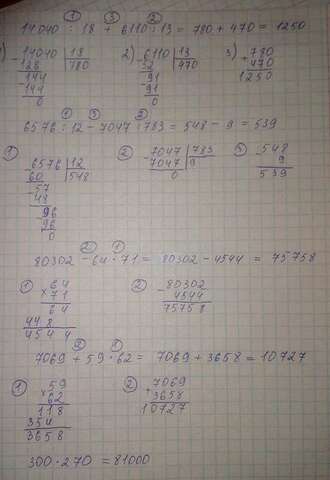 ① ③ ②
14040 : 18 + 6110 : 13 = 780 + 470 = 1250
1) 14040 | 18 2) 6110 | 13 3) 780
128 | 780 52 | 470 + 470
144 91 1250
144 91
0 0
① ③ ②
6576 : 12 - 7047 : 783 = 548 - 9 = 539
① 6576 | 12 ② 7047 | 783 ③ - 548
60 | 548 7047 | 9 9
57 0 539
48
96
96
0
② ①
80302 - 64 · 71 = 80302 - 4544 = 75758
① × 64 ② - 80302
71 4544
64 75758
448
4544
② ①
7069 + 59 · 62 = 7069 + 3658 = 10727
① × 59 ② + 7069
62 3658
118 10727
354
3658
300 · 270 = 81000